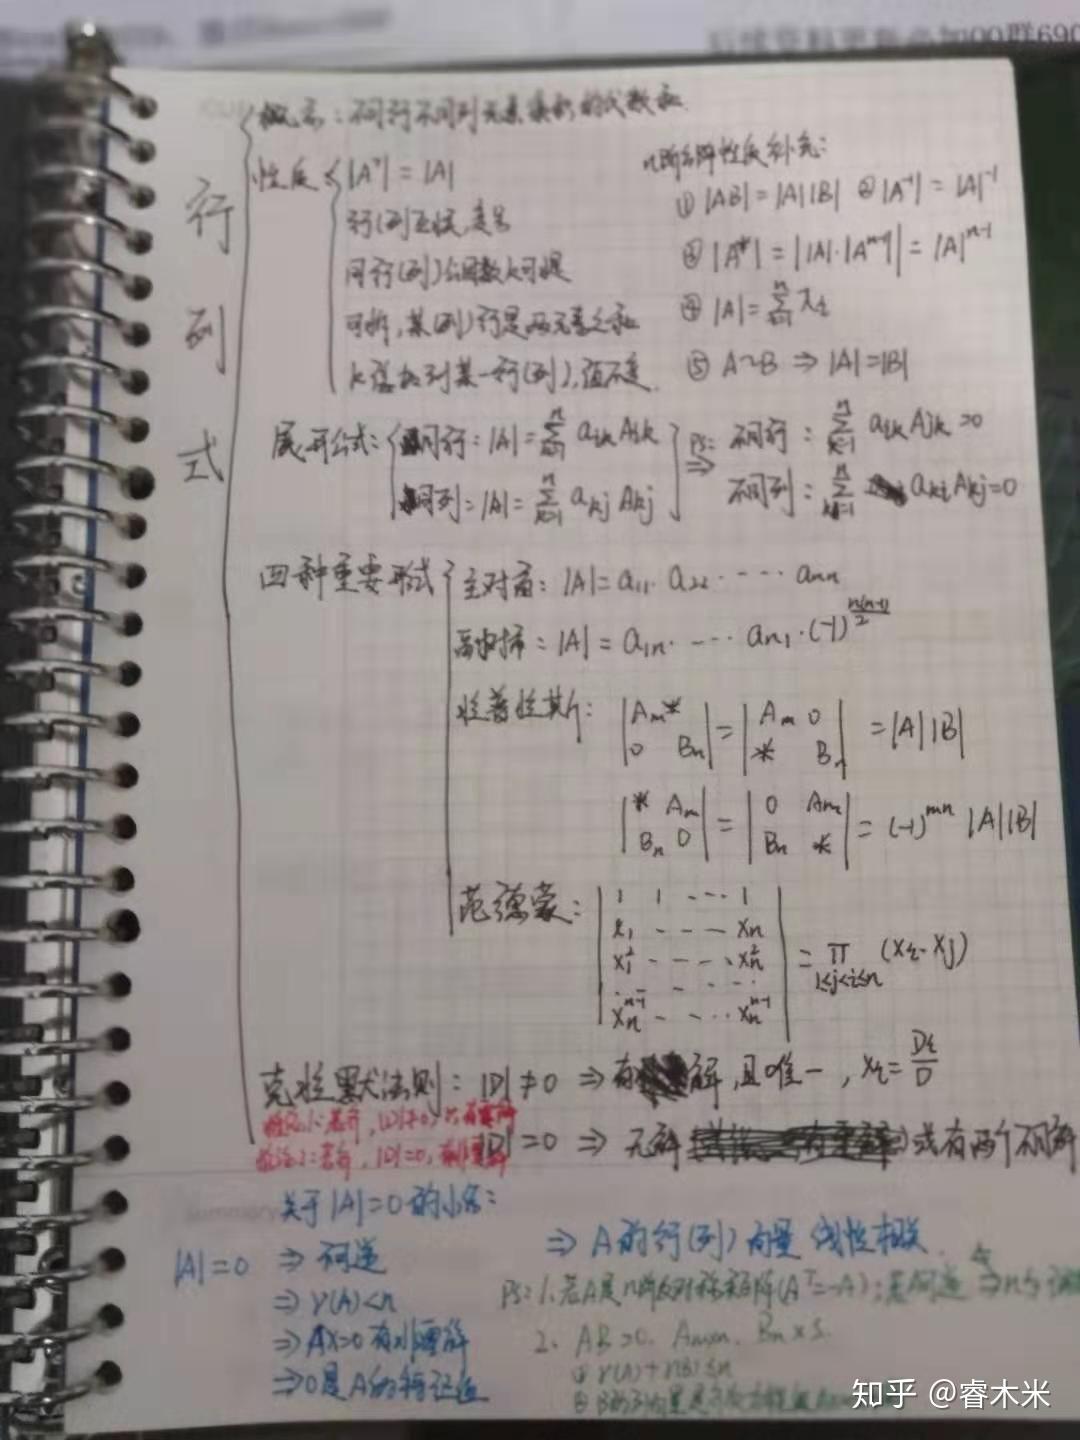 行列式
概念：不同行不同列元素乘积的代数和
性质
|Aᵀ| = |A|
行(列)互换,变号
同行(列)公因数k可提
可拆,某(列)行是两元素之和
k倍加到某一行(列),值不变
n阶方阵性质补充：
① |AB|=|A||B| ② |A⁻¹| = |A|⁻¹
③ |A*| = ||A|·|A⁻¹|| = |A|ⁿ⁻¹
④ |A| = ∑ λi
⑤ A~B ⇒ |A|=|B|
展开公式：
同行：|A|=∑ aik Aik
同列：|A|=∑ akj Akj
⇒ PS: 不同行：∑ aik Ajk=0
不同列：∑ aki Akj=0
四种重要形式
主对角：|A|=a11·a22·····ann
副对角：|A|=a1n·····an1·(-1)^(n(n-1)/2)
拉普拉斯：
|Am * ; 0 Bn| = |Am 0 ; * Bn| = |A||B|
|* Am ; Bn 0| = |0 Am ; Bn *| = (-1)^mn |A||B|
范德蒙：
1 1 ··· 1
x1 ···· xn
x1² ···· xn²
······
xn^(n-1) ···· xn^(n-1)
= ∏ 1≤j<i≤n (xi-xj)
克拉默法则：|D|≠0 ⇒ 有解,且唯一, xi=Di/D
|D|=0 ⇒ 无解 或有两个不同解
推论1：若齐,|D|≠0,只有零解
推论2：若齐,|D|=0,有非零解
summary
关于|A|=0的小结：
|A|=0 ⇒ 不可逆
⇒ r(A)<n
⇒ Ax=0有非零解
⇒ 0是A的特征值
⇒ A的行(列)向量线性相关
PS: 1.若A是n阶反对称矩阵(Aᵀ=-A)：若可逆 ⇒ n为
2. AB=0. Am×n. Bn×s.
① r(A)+r(B)≤n
② B的列向量是齐次方程组
知乎 @睿木米